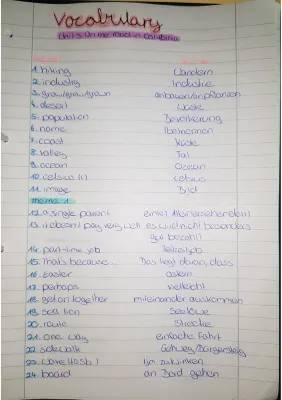 Vocabulary
1. hiking Wandern
2. industry Industrie
3. grow/grew/grown anbauen/anpflanzen
4. desert Wüste
5. population Bevölkerung
6. name
7. coast Küste
8. valley Tal
9. ocean Ozean
10. celsius Celsius
11. image Bild
12. a single parent
13. it doesn't pay very well es wird nicht besonders
gut bezahlt
14. part-time job Teilzeitjob
15. That's because... Das liegt daran, dass
16. easter ostern
17. perhaps vielleicht
18. get on together miteinander auskommen
19. sea lion Seelöwe
20. route Strecke
21. one way einfache Fahrt
22. sidewalk Gehweg/Bürgersteig
23. zuwinken
24. board an Bord gehen